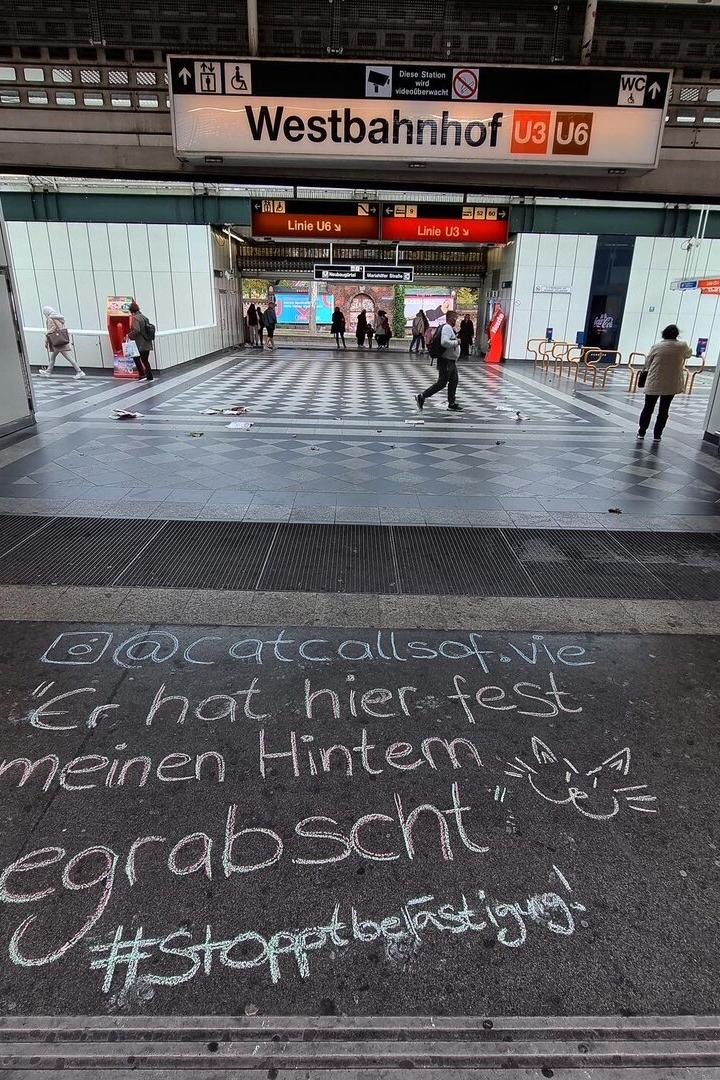 Diese Station
wird
videoüberwacht
WC
Westbahnhof U3 U6
Linie U6
9 52 60
Linie U3
Neubaugürtel Mariahilfer Straße
@catcallsof.vie
"Er hat hier fest
meinen Hintern
egrabscht"
#Stopptbelästigug!